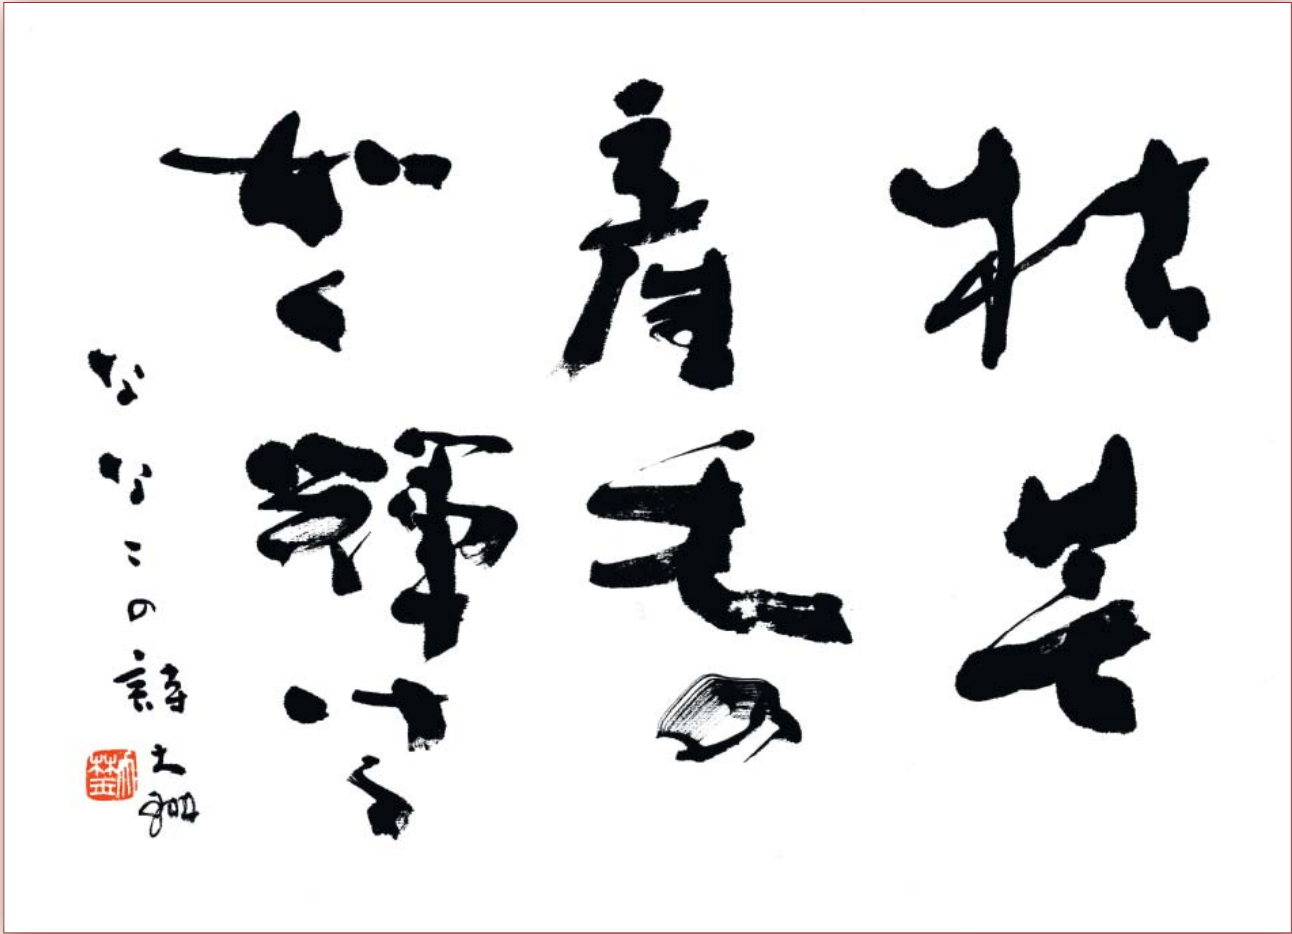 枯芒
産毛の
如く輝ける
ななこの詩